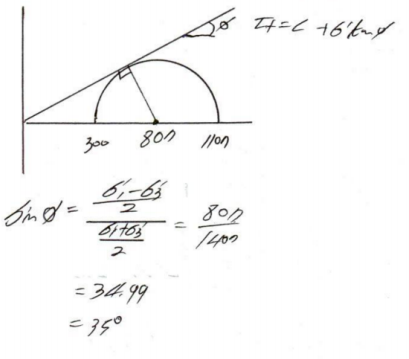 ϕ τf = c + σ' tan ϕ
300 800 1100
sin ϕ = \frac{\frac{σ'1 - σ'3}{2}}{\frac{σ'1 + σ'3}{2}} = \frac{800}{1400}
= 34.99
= 35°